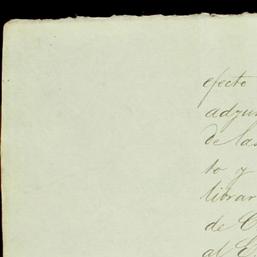 efecto
adju
de las
to y
librar
de C
al